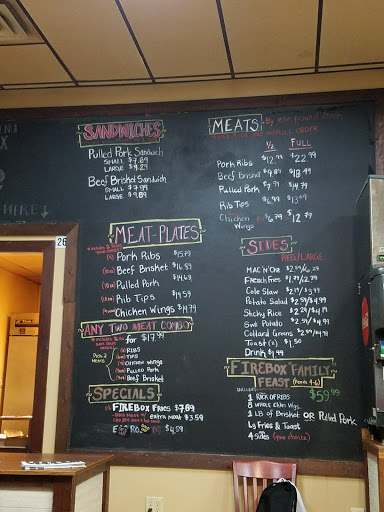 SANDWICHES
Pulled Pork Sandwich
SMALL $7.89
LARGE $9.29
Beef Brisket Sandwich
SMALL $7.99
LARGE $9.89
HERE ↓
26
MEAT-PLATES
Pork Ribs $15.79
Beef Brisket $16.89
Pulled Pork $14.69
Rib Tips $14.59
Chicken Wings $14.79
ANY TWO MEAT COMBO
for $17.99
PICK 2 MEATS
RIBS
TIPS
CHICKEN WINGS
Pulled Pork
Beef Brisket
SPECIALS
FIREBOX FRIES $7.89
extra meat $3.59
$4.59
MEATS
ORDER
1/2 FULL
Pork Ribs $12.99 $22.99
Beef Brisket $9.89 $18.49
Pulled Pork $7.99 $14.79
Rib Tips $6.99 $13.99
Chicken Wings $6.79 $12.79
SIDES
REG/LARGE
MAC'N'CHZ
French Fries
Cole Slaw
Potato Salad $2.59/$4.99
Sticky Rice
Swt Potato $2.59/4.99
Collard Greens $2.59/4.99
Toast (2) $1.50
Drink $1.99
FIREBOX FAMILY
FEAST (Feeds 4-6)
INCLUDES $59.99
1 RACK OF RIBS
8 whole chkn wgs
1 LB of Brisket OR Pulled Pork
Lg Fries & Toast
4 sides (your choice)